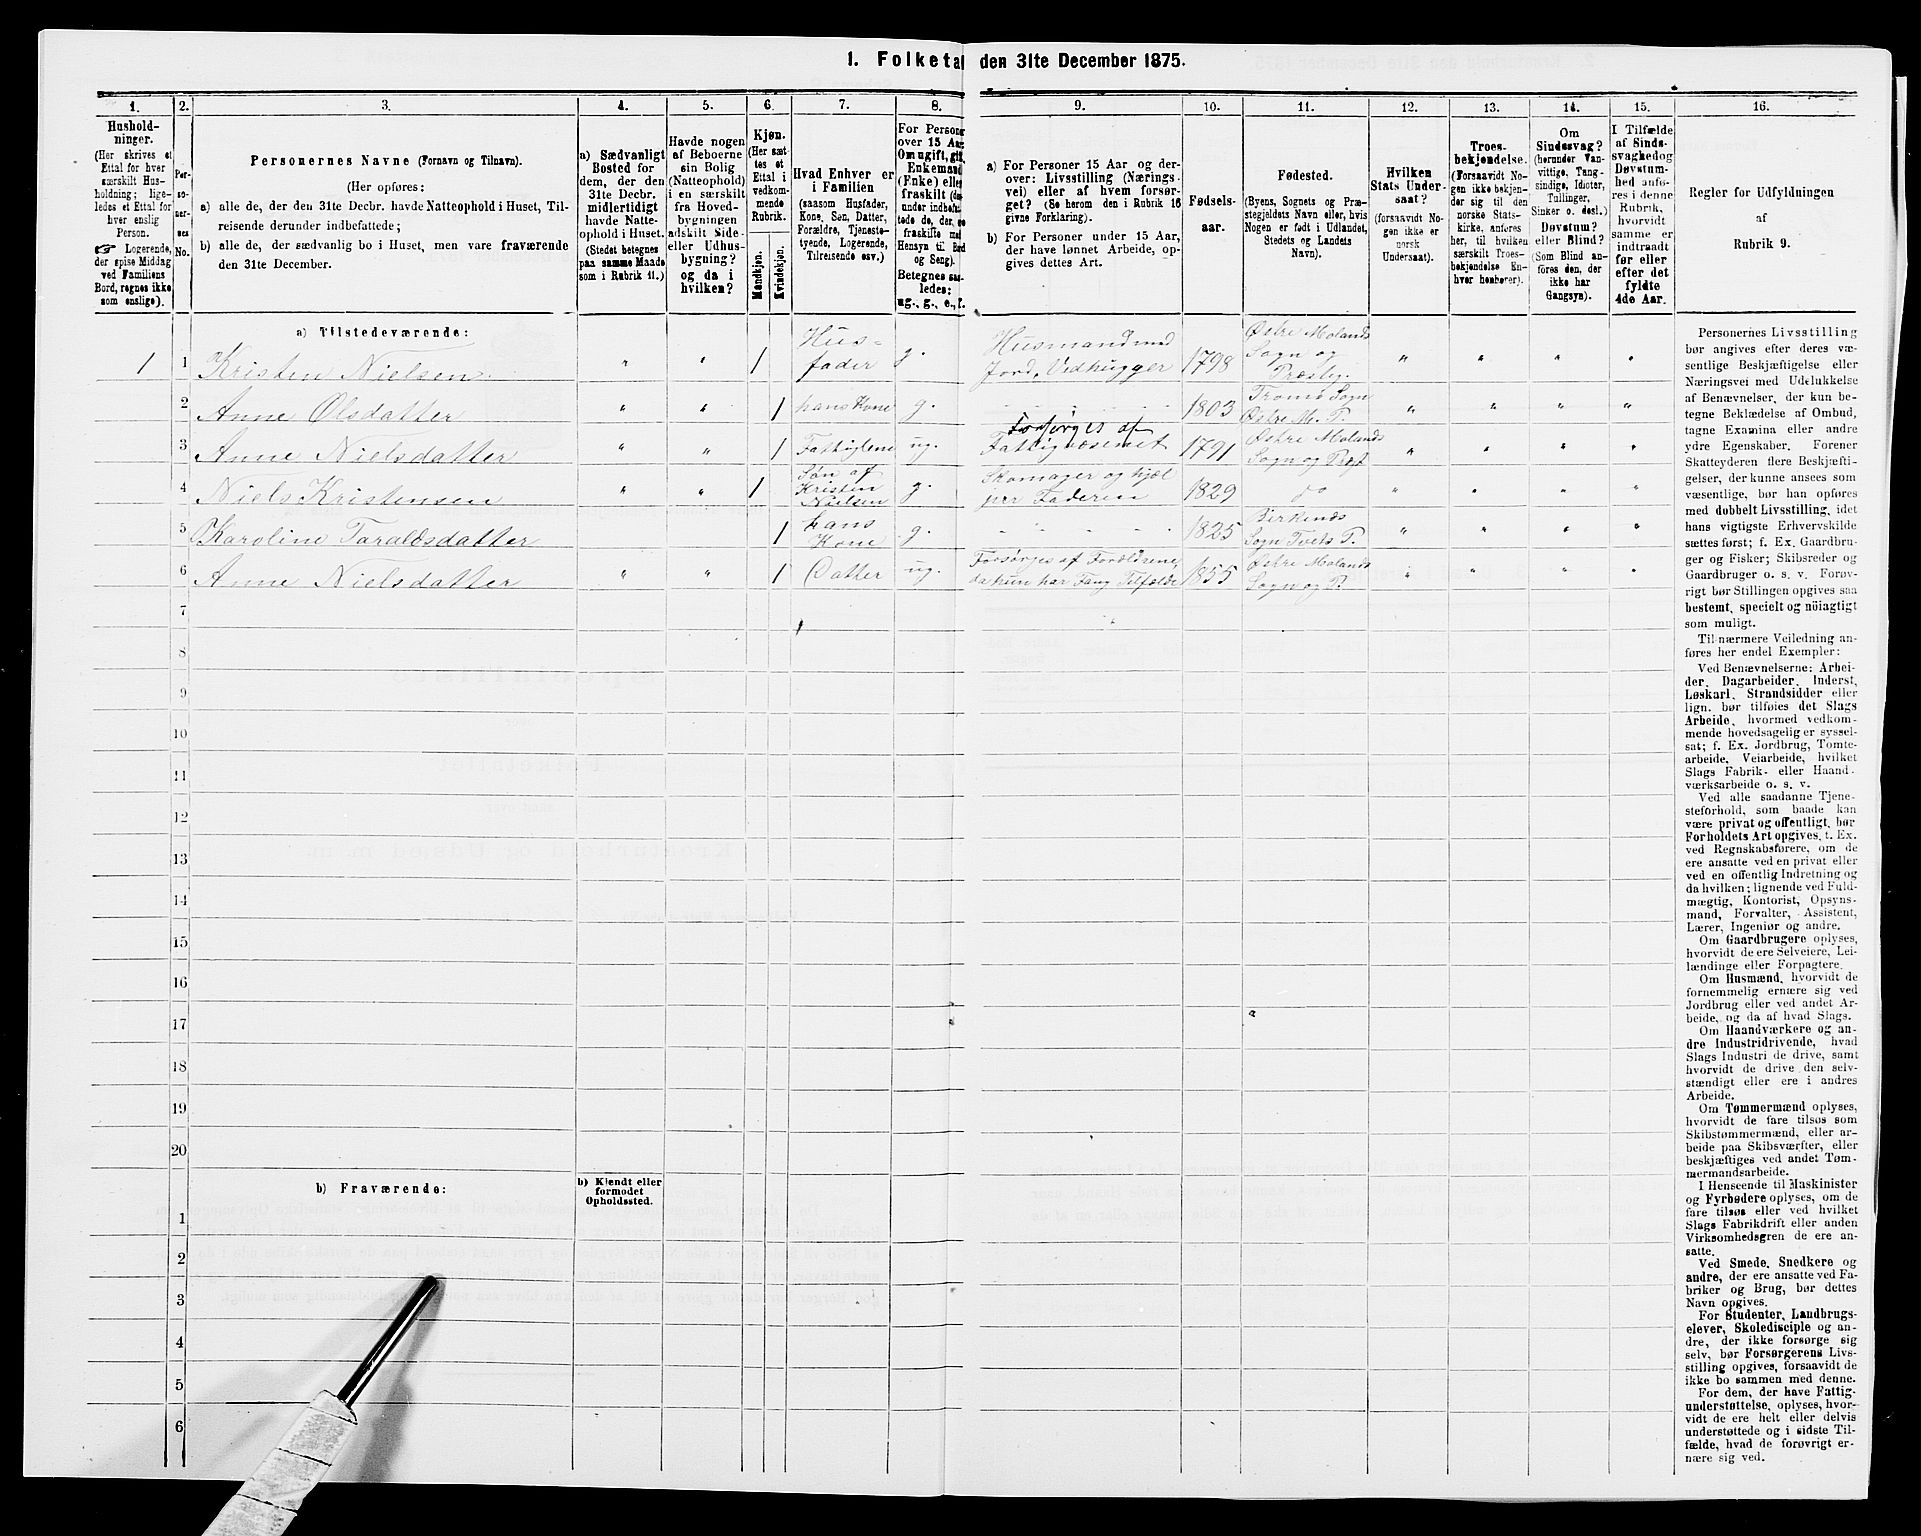 1. Folketal den 31te December 1875.
1.
2.
3.
4.
5.
6.
7.
8.
9.
10.
11.
12.
13.
14.
15.
16.
Hushold-
ninger.
(Her skrives et
Ettal for hver
særskilt Hus-
holdning; lige-
ledes et Ettal for
hver enslig
Person.
☞ Logerende,
der spise Middag
ved Familiens
Bord, regnes ikke
som enslige).
Per-
so-
ner-
nes
No.
Personernes Navne (Fornavn og Tilnavn).
(Her opføres:
a) alle de, der den 31te Decbr. havde Natteophold i Huset, Til-
reisende derunder indbefattede;
b) alle de, der sædvanlig bo i Huset, men vare fraværende
den 31te December.
a) Sædvanligt
Bosted for
dem, der den
31te Decbr.
midlertidigt
havde Natte-
ophold i Huset.
(Stedet betegnes
paa samme Maade
som i Rubrik 11.)
Havde nogen
af Beboerne
sin Bolig
(Natteophold)
i en særskilt
fra Hoved-
bygningen
adskilt Side-
eller Udhus-
bygning?
og da i
hvilken?
Kjøn.
(Her sæt-
tes et
Ettal i
vedkom-
mende
Rubrik.
Mandkjøn.
Kvindekjøn.
Hvad Enhver er
i Familien
(saasom Husfader,
Kone, Søn, Datter,
Forældre, Tjeneste-
tyende, Logerende,
Tilreisende osv.)
For Persone
over 15 Aar
Om ugift, gift,
Enkemand
(Enke) eller
fraskilt (de
under indbefat-
tede de, der, ere
fraskilte med
Hensyn til Bord
og Seng).
Betegnes saa-
ledes:
ug., g., e., f.
a) For Personer 15 Aar og der-
over: Livsstilling (Nærings-
vei) eller af hvem forsør-
get? (Se herom den i Rubrik 16
givne Forklaring).
b) For Personer under 15 Aar,
der have lønnet Arbeide, op-
gives dettes Art.
Fødsels-
aar.
Fødested.
(Byens, Sognets og Præ-
stegjeldets Navn eller, hvis
Nogen er født i Udlandet,
Stedets og Landets
Navn).
Hvilken
Stats Under-
saat?
(forsaavidt No-
gen ikke er
norsk
Undersaat).
Troes-
bekjendelse.
(Forsaavidt No-
gen ikke bekjen-
der sig til den
norske Stats-
kirke, anføres
her, til hvilken
særskilt Troes-
bekjendelse En-
hver henhører).
Om
Sindssvag?
(herunder Van-
vittige, Tang-
sindige, Idioter,
Tullinger,
Sinker o. desl.)
Døvstum?
eller Blind?
(Som Blind an-
føres den, der
ikke har
Gangsyn).
I Tilfælde
af Sinds-
svaghedog
Døvstum-
hed anfø-
res i denne
Rubrik,
hvorvidt
samme er
indtraadt
før eller
efter det
fyldte
4de Aar.
Regler for Udfyldningen
af
Rubrik 9.
a) Tilstedeværende:
1 1 Kristen Nielsen. " " 1 Hus-
fader g. Husmand med
Jord, Vedhugger 1798 Østre Molands
Sogn og
Præstg. " " " "
2 Anne Olsdatter " " 1 hans Kone g. " 1803 Tromø Sogn
Østre M. P. " " " "
3 Anne Nielsdatter " " 1 Fattiglem ug. Forsørges af
Fattigvæsenet 1791 Østre Molands
Sogn og Præst " " " "
4 Niels Kristensen " " 1 Søn af
Kristen
Nielsen g. Skomager og hjæl
per Faderen 1829 do " " " "
5 Karoline Taraldsdatter 1 hans
Kone g. " 1825 Birkends
Sogn Tvets P. " " " "
6 Anne Nielsdatter " " 1 Datter ug. Forsørges af Forældrene,
da hun har Fang Tilfælde 1855 Østre Molands
Sogn og P. " " " "
7
8
9
10
11
12
13
14
15
16
17
18
19
20
b) Fraværende:
b) Kjendt eller
formodet
Opholdssted.
1
2
3
4
5
6
Personernes Livsstilling
bør angives efter deres væ-
sentlige Beskjæftigelse eller
Næringsvei med Udelukkelse
af Benævnelser, der kun be-
tegne Beklædelse af Ombud,
tagne Examina eller andre
ydre Egenskaber. Forener
Skatteyderen flere Beskjæfti-
gelser, der kunne ansees som
væsentlige, bør han opføres
med dobbelt Livsstilling, idet
hans vigtigste Erhvervskilde
sættes først; f. Ex. Gaardbru-
ger og Fisker; Skibsreder og
Gaardbruger o. s. v. Forøv-
rigt bør Stillingen opgives saa
bestemt, specielt og nöiagtigt
som muligt.
Til nærmere Veiledning an-
føres her endel Exempler:
Ved Benævnelserne: Arbei-
der, Dagarbeider, Inderst,
Løskarl, Strandsidder eller
lign. bør tilføies det Slags
Arbeide, hvormed vedkom-
mende hovedsagelig er syssel-
sat; f. Ex. Jordbrug, Tomte-
arbeide, Veiarbeide, hvilket
Slags Fabrik- eller Haand-
værksarbeide o. s. v.
Ved alle saadanne Tjene-
steforhold, som baade kan
være privat og offentligt, bør
Forholdets Art opgives, t. Ex.
ved Regnskabsførere, om de
ere ansatte ved en privat eller
ved en offentlig Indretning og
da hvilken; lignende ved Fuld-
mægtig, Kontorist, Opsyns-
mand, Forvalter, Assistent,
Lærer, Ingeniør og andre.
Om Gaardbrugere oplyses,
hvorvidt de ere Selveiere, Lei-
lændinge eller Forpagtere.
Om Husmænd, hvorvidt de
fornemmelig ernære sig ved
Jordbrug eller ved andet Ar-
beide, og da af hvad Slags.
Om Haandværkere og an-
dre Industridrivende, hvad
Slags Industri de drive, samt
hvorvidt de drive den selv-
stændigt eller ere i andres
Arbeide.
Om Tømmermænd oplyses,
hvorvidt de fare tilsøs som
Skibstømmermænd, eller ar-
beide paa Skibsværfter, eller
beskjæftiges ved andet Tøm-
mermandsarbeide.
I Henseende til Maskinister
og Fyrbødere oplyses, om de
fare tilsøs eller ved hvilket
Slags Fabrikdrift eller anden
Virksomhedsgren de ere an-
satte.
Ved Smede, Snedkere og
andre, der ere ansatte ved Fa-
briker og Brug, bør dettes
Navn opgives.
For Studenter, Landbrugs-
elever, Skoledisciple og an-
dre, der ikke forsørge sig
selv, bør Forsørgerens Livs-
stilling opgives, forsaavidt de
ikke bo sammen med denne.
For dem, der have Fattig-
understøttelse, oplyses, hvor-
vidt de ere helt eller delvis
understøttede og i sidste Til-
fælde, hvad de forøvrigt er-
nære sig ved.